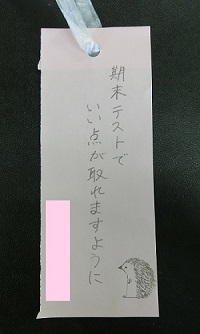 期末テストで
いい点が取れますように